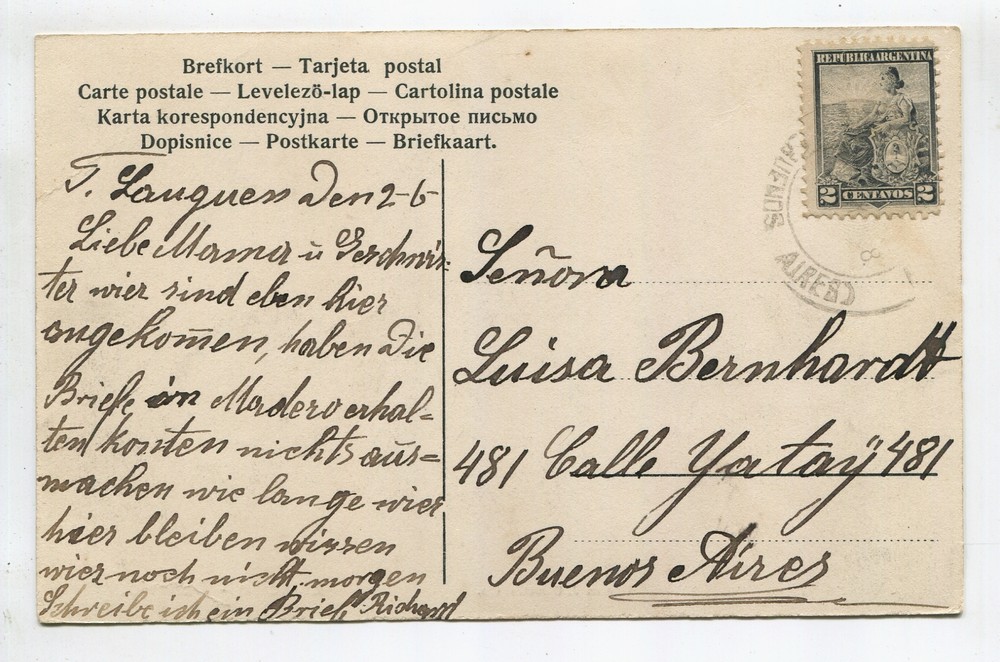 Brefkort — Tarjeta postal
Carte postale — Levelezö-lap — Cartolina postale
Karta korespondencyjna — Открытое письмо
Dopisnice — Postkarte — Briefkaart.
T. Lauquen Den 2-6
Liebe Mama ū Geschwis:
ter wier sind eben hier
angekom̄en, haben Die
Briefe in Madero erhal=
ten konten nichts aus=
machen wie lange wier
hier bleiben wissen
wier noch nicht, morgen
Schreibe ich ein Brief. Richard
REPUBLICA ARGENTINA
2 CENTAVOS 2
BUENOS
AIRES
8
Señora
Luisa Bernhardt
481 Calle Yataÿ 481
Buenos Aires